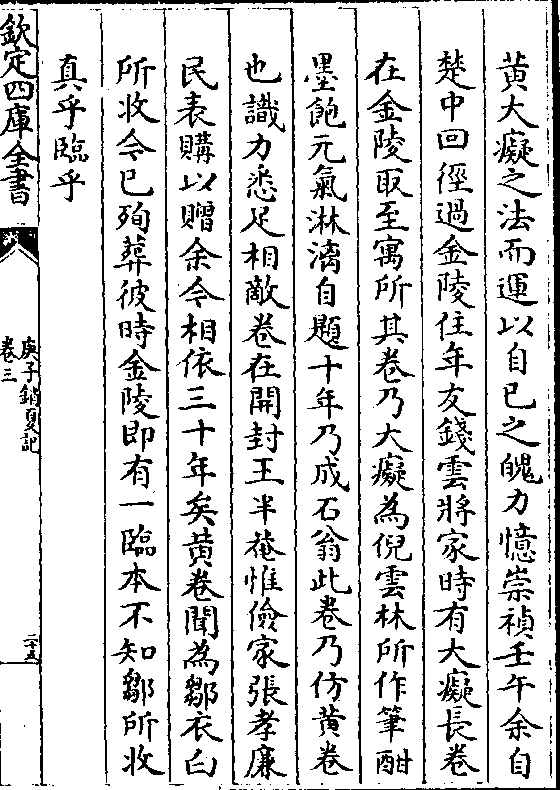 黄大癡之法而運以自已之魄力憶崇禎壬午余自
楚中回徑過金陵住年友錢雲將家時有大癡長卷
在金陵取至寓所其卷乃大癡為倪雲林所作筆酣
墨飽元氣淋漓自題十年乃成石翁此卷乃仿黄卷
也識力悉足相敵卷在開封王半菴惟儉家張孝廉
民表購以贈余今相依三十年矣黄卷聞為鄒衣白
所收今已殉葬彼時金陵即有一臨本不知鄒所收
真乎臨乎
欽定四庫全書
庚子銷夏記
卷三
二十五